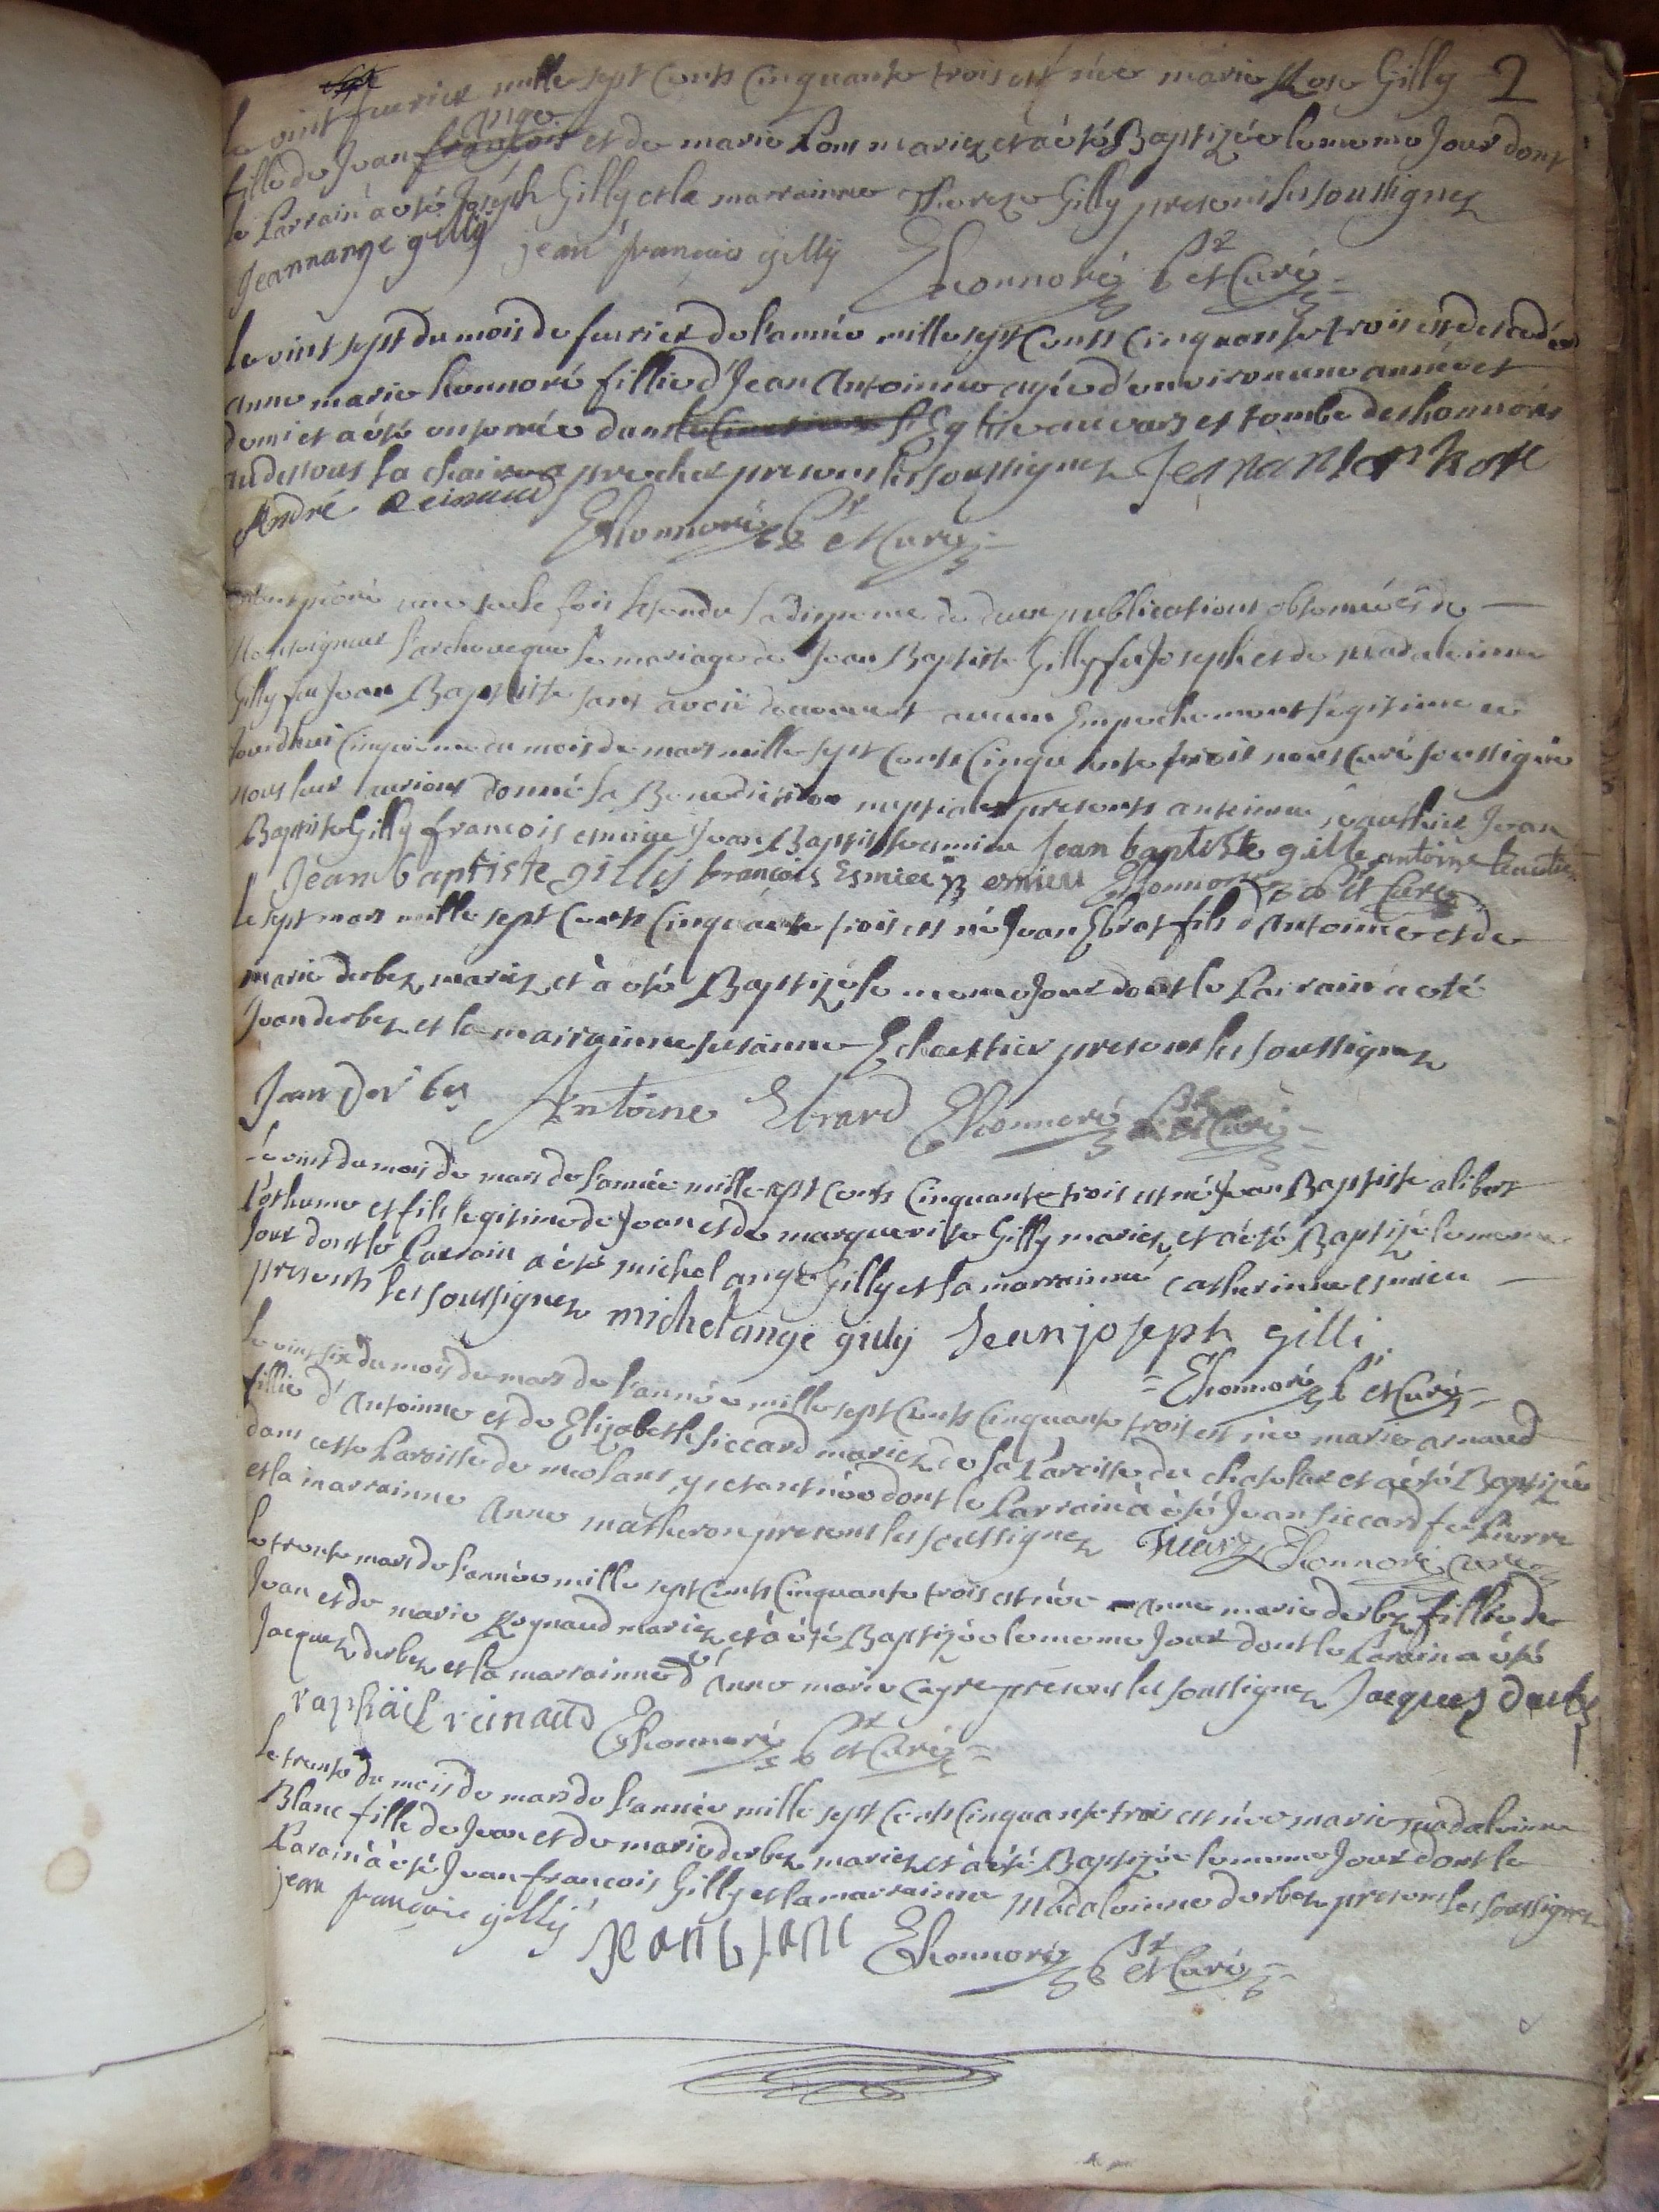 2
le vint feurier mille sept Cents Cinquante trois est née marie Rose Gilly
ange
fille de Jean françois et de marie Pons mariez et a été Baptizée le meme Jour dont
le Parrain a été Joseph Gilly et la marrainne Thereze Gilly presents les soussignez
Jeannange gilly jean françois gilly EHonnoré Ptr et Curé
le vint sept du mois de feurier de l'année mille sept Cents Cinquante trois est decedée
anne marie honnoré fillie d'Jean Antoinne agée d'environ une année et
demi et a été enterrée dans l'Eglise au vas et tombe des honnorés
au dessous la chaire a precher presents les soussignez
André Reinaud EHonnoré Ptr et Curé
une seule fois attendu la dispense de deux publications obtenuës de
Monseigneur l'archeveque le mariage de Jean Baptiste Gilly feu Joseph et de Madaleinne
Gilly feu Jean Baptiste sans avoir decouvert aucun Empechement legitime ce
Jourdhui Cinquieme du mois de mars mille sept Cents Cinquante trois nous Curé soussigné
nous leur aurions donné la Benediction nuptiale presents antoinne Jean
Baptiste Gilly françois esmieu Jean Baptiste esmieu Jean baptiste gille antoine
Jean baptiste gilly françois Esmieu B esmieu EHonnoré Ptr et Curé
le sept mars mille sept Cents Cinquante trois est né Jean Ebrat fils d'Antoinne et de
marie derbez mariez et a été Baptizé le meme Jour dont le Parrain a eté
Jean derbez et la marrainne susanne presents les soussignez
Jean Derbes Antoine Ebrard EHonnoré Ptr et Curé
le vint du mois de mars de l'année mille sept Cents Cinquante trois est né Jean Baptiste alibert
Posthume et fils legitime de Jean et de marguerite Gilly mariez et a été Baptizé le meme
Jour dont le Parrain a été michel ange Gilly et la marrainne catherinne esmieu
presents les soussignez michel ange gilly Jean joseph gilli
EHonnoré Ptr et Curé
le vint six du mois de mars de l'année mille sept Cents Cinquante trois est née marie arnaud
fillie d'Antoinne et de Elizabeth siccard mariez de la Parroisse du chatelar et a été Baptizée
dans cette Paroisse de meolans y etant née dont le Parrain a été Jean siccard feu Pierre
et la marrainne Anne matheron presents les soussignez EHonnoré Curé
le trente mars de l'année mille sept Cents Cinquante trois est née anne marie derbez fillie de
Jean et de marie Reynaud mariez et a été Baptizée le meme Jour dont le Parain a été
Jacques derbez et la marrainne anne marie presents les soussignez Jacques derbes
raphaël reinaud EHonnoré Ptr et Curé
le trente du mois de mars de l'année mille sept Cents Cinquante trois est née marie madaleinne
Blanc fille de Jean et de marie derbez mariez et a été Baptizée le meme Jour dont le
Parain a été Jean françois Gilly et la marrainne Madaleinne derbez presents les soussignez
jean françois gilly Jean blanc EHonnoré Ptr et Curé